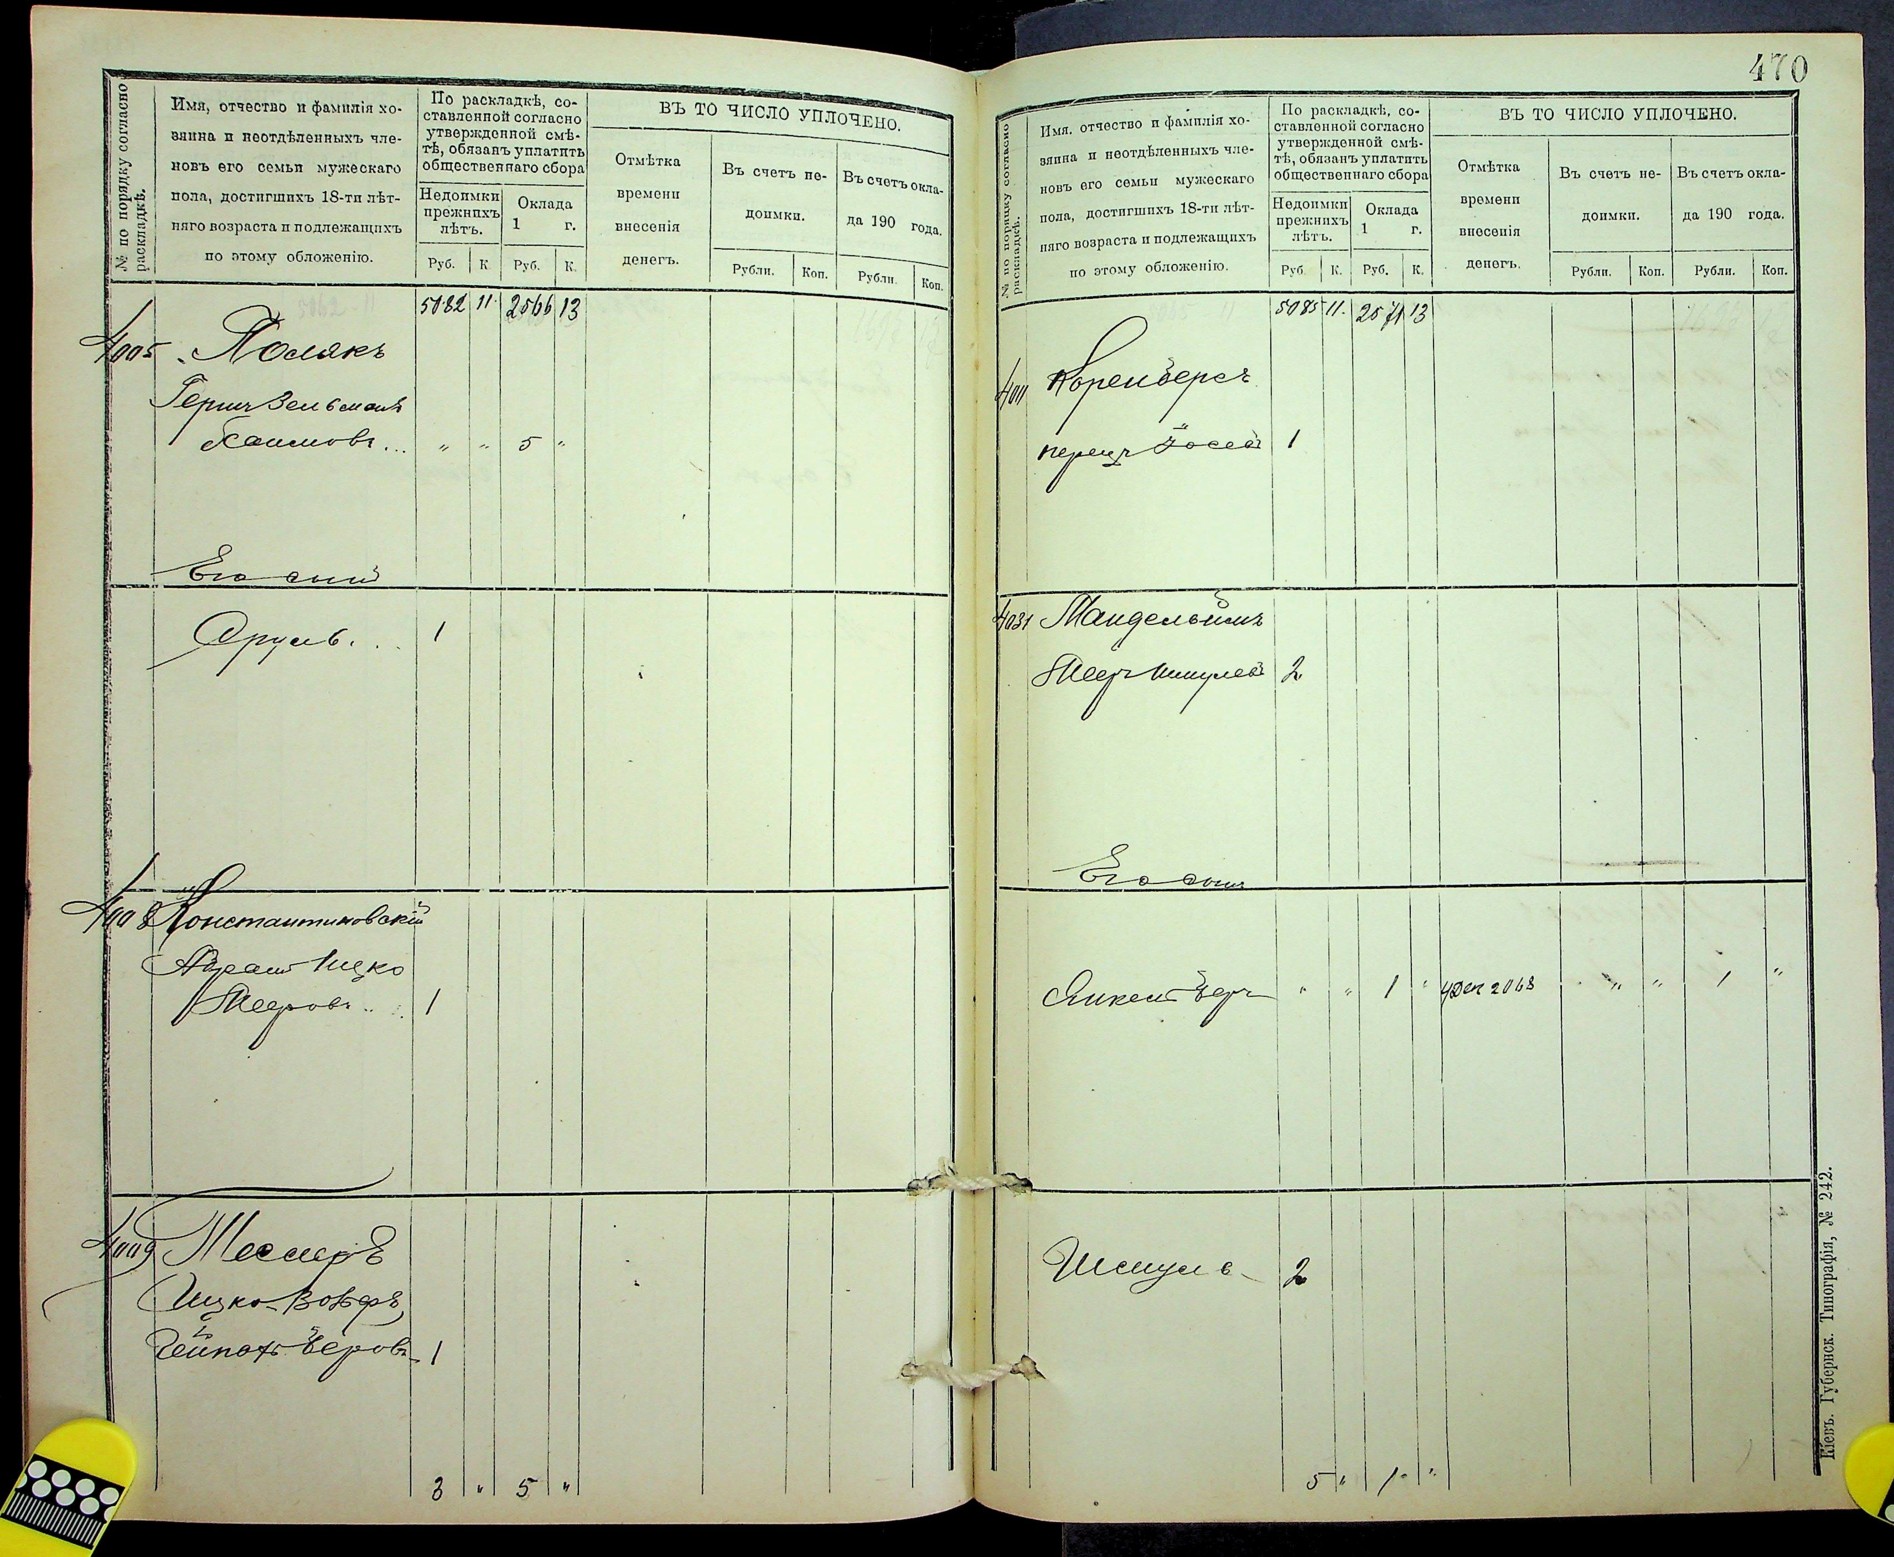 № по порядку согласно
раскладкѣ.
Имя, отчество и фамилія хо-
зяина и неотдѣленныхъ чле-
новъ его семьи мужескаго
пола, достигшихъ 18-ти лѣт-
няго возраста и подлежащихъ
по этому обложенію.
По раскладкѣ, со-
ставленной согласно
утвержденной смѣ-
тѣ, обязанъ уплатить
общественнаго сбора
Недоимки
прежнихъ
лѣтъ.
Оклада
1 г.
Руб. К. Руб. К.
ВЪ ТО ЧИСЛО УПЛОЧЕНО.
Отмѣтка
времени
внесенія
денегъ.
Въ счетъ не-
доимки.
Въ счетъ окла-
да 190 года.
Рубли. Коп. Рубли. Коп.
5082 11 2566 13
4005 Полякъ
Герш Зельманъ
Хаимовъ... " " 5 "
Его сынъ
Сруль... 1
4008 Константиновскій
Абрамъ Ицко
Мееровъ.. 1
4009 Месслеръ
Ицко-Вольфъ
Лейпахъ Беровъ 1
3 " 5 "
470
№ по порядку согласно
раскладкѣ.
Имя, отчество и фамилія хо-
зяина и неотдѣленныхъ чле-
новъ его семьи мужескаго
пола, достигшихъ 18-ти лѣт-
няго возраста и подлежащихъ
по этому обложенію.
По раскладкѣ, со-
ставленной согласно
утвержденной смѣ-
тѣ, обязанъ уплатить
общественнаго сбора
Недоимки
прежнихъ
лѣтъ.
Оклада
1 г.
Руб. К. Руб. К.
ВЪ ТО ЧИСЛО УПЛОЧЕНО.
Отмѣтка
времени
внесенія
денегъ.
Въ счетъ не-
доимки.
Въ счетъ окла-
да 190 года.
Рубли. Коп. Рубли. Коп.
5085 11 2571 13
4011 Коренбергъ
Перецъ Іосев 1
4031 Мандельбимъ
Меер Шмулев 2
Его сынъ
Янкель Бер " " 1 " 4 Дек 2068 " " 1 "
Шмуль 2
5 " 1 "
Кіевъ. Губернск. Типографія, № 242.